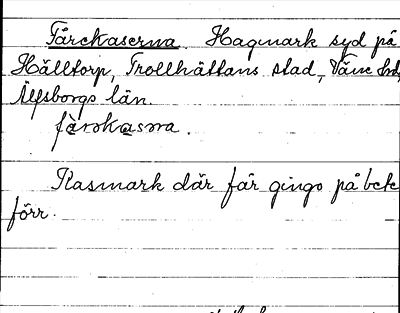 Fårekaserna Hagmark syd på
Hälltorp, Trollhättans stad, Väne hd,
Älfsborgs län.
Kasmark där får gingo på bete
förr.